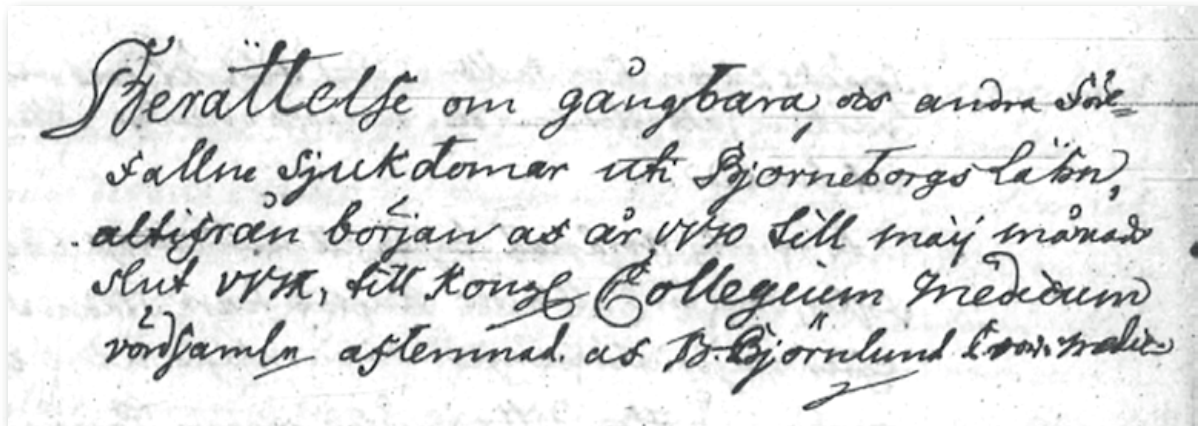 Berättelse om gångbara och andra före=
fallne Sjukdomar uti Björneborgs Lähn,
altifrån början af år 1770 till maij månads
slut 1771, till Kongl Collegium Medicum
vördsamln aflemnad. af B. Björnlund Prov. medic